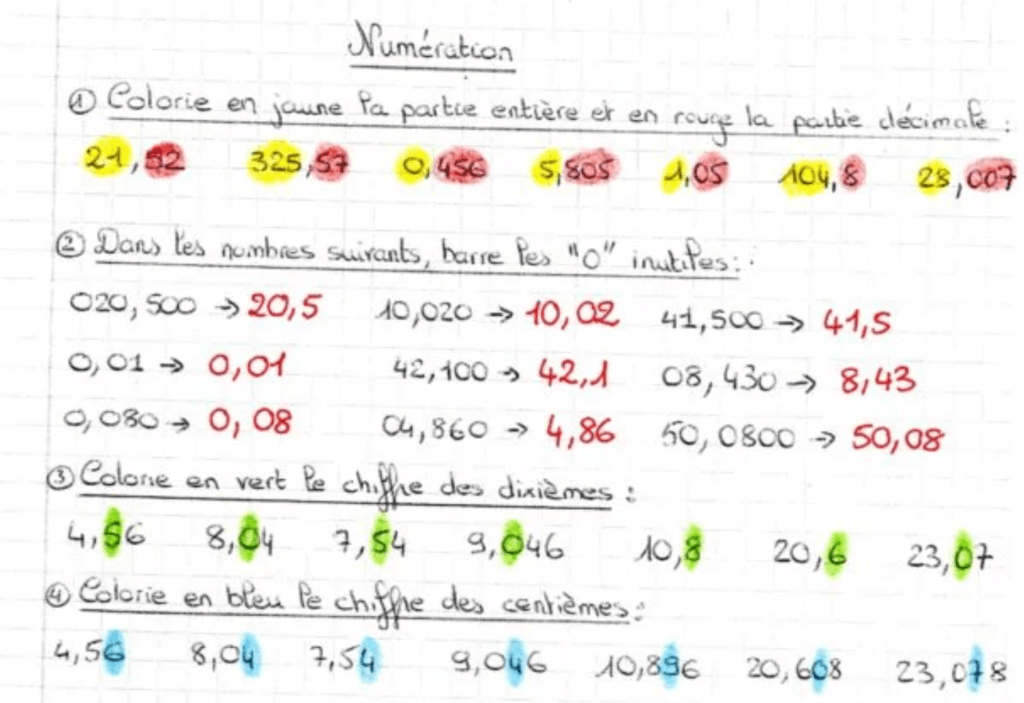 Numération
① Colorie en jaune la partie entière et en rouge la partie décimale :
21,92 325,57 0,456 5,805 1,05 104,8 28,007
② Dans les nombres suivants, barre les "0" inutiles :
020,500 → 20,5 10,020 → 10,02 41,500 → 41,5
0,01 → 0,01 42,100 → 42,1 08,430 → 8,43
0,080 → 0,08 04,860 → 4,86 50,0800 → 50,08
③ Colorie en vert le chiffre des dixièmes :
4,56 8,04 7,54 9,046 10,8 20,6 23,07
④ Colorie en bleu le chiffre des centièmes :
4,56 8,04 7,54 9,046 10,896 20,608 23,078